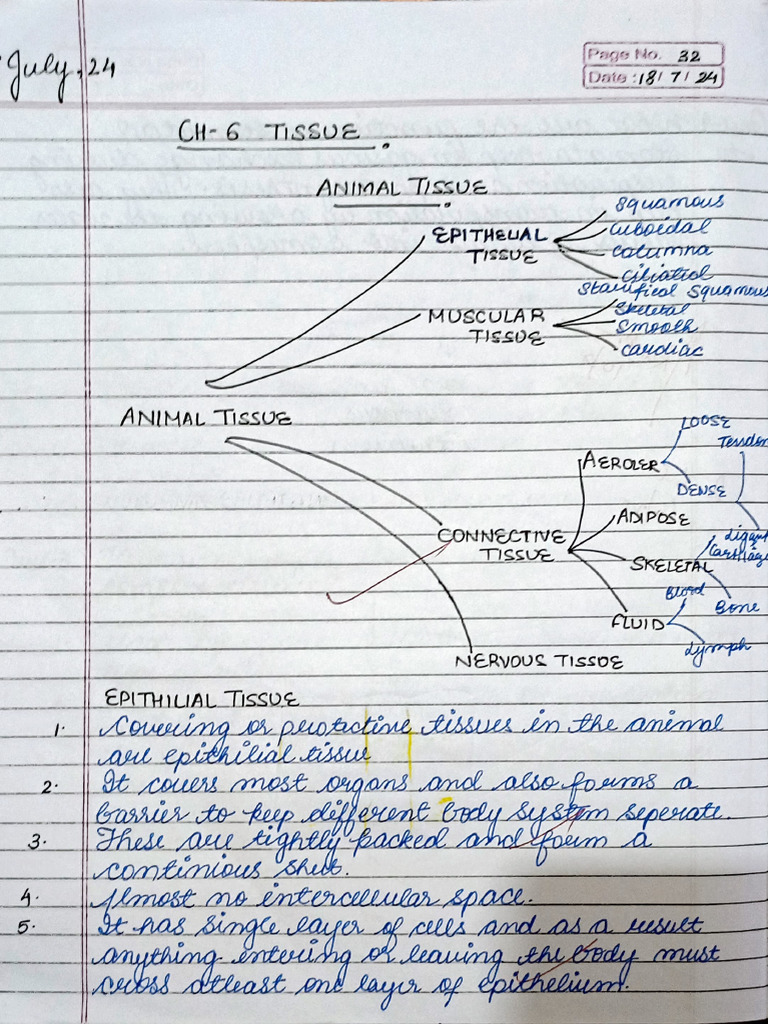 July, 24
Page No. 32
Date : 18/7/24
CH-6 TISSUE
ANIMAL TISSUE
EPITHELIAL TISSUE
squamous
cuboidal
columna
ciliated
Starified Squamous
MUSCULAR TISSUE
Skeletal
Smooth
cardiac
ANIMAL TISSUE
CONNECTIVE TISSUE
AEROLER
LOOSE
DENSE
Tendon
ADIPOSE
SKELETAL
Cartilage
Bone
FLUID
Blood
Lymph
NERVOUS TISSUE
EPITHILIAL TISSUE
1. Covering or protactine tissues in the animal
are epithilial tissue
2. It covers most organs and also forms a
barrier to keep different body system seperate.
3. These are tightly packed and form a
continious sheet.
4. Almost no intercellular space.
5. It has single layer of cells and as a result
anything entering or leaving the body must
cross atleast one layer of epithelium.